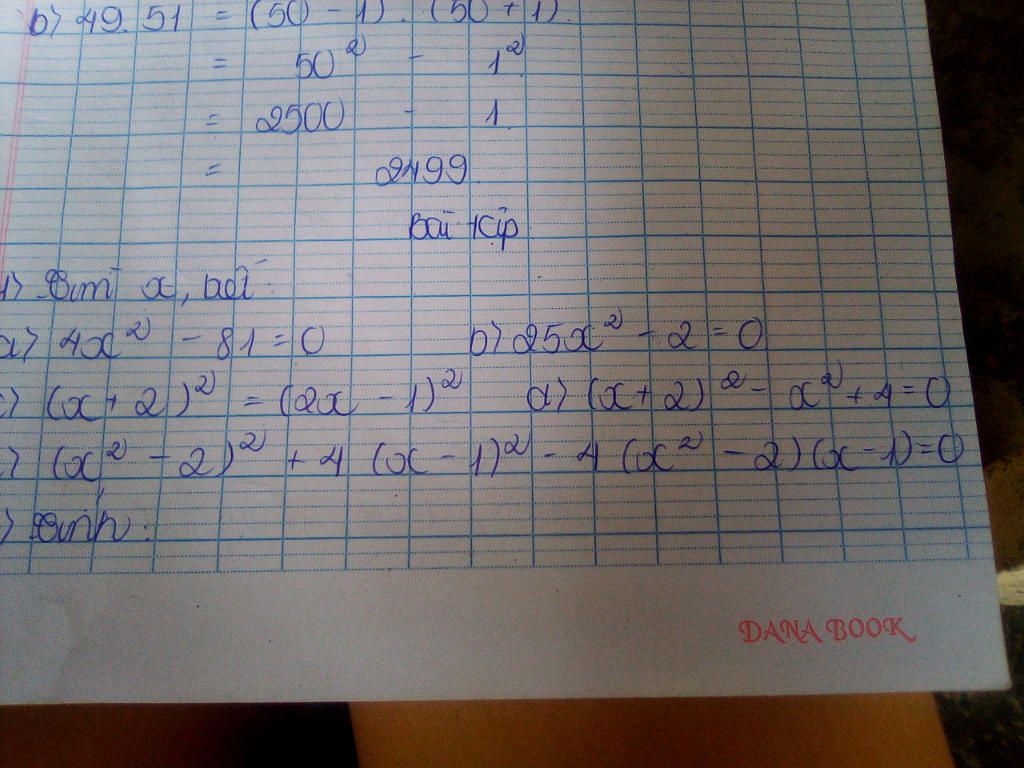 b) 49.51 = (50 - 1). (50 + 1).
= 50² - 1²
= 2500 - 1
= 2499
Bài tập
1) Tìm x, biết:
a) 4x² - 81 = 0 b) 25x² - 2 = 0
c) (x + 2)² = (2x - 1)² d) (x + 2)² - x² + 4 = 0
) (x² - 2)² + 4 (x - 1)² - 4 (x² - 2) (x - 1) = 0
) Tính:
DANA BOOK